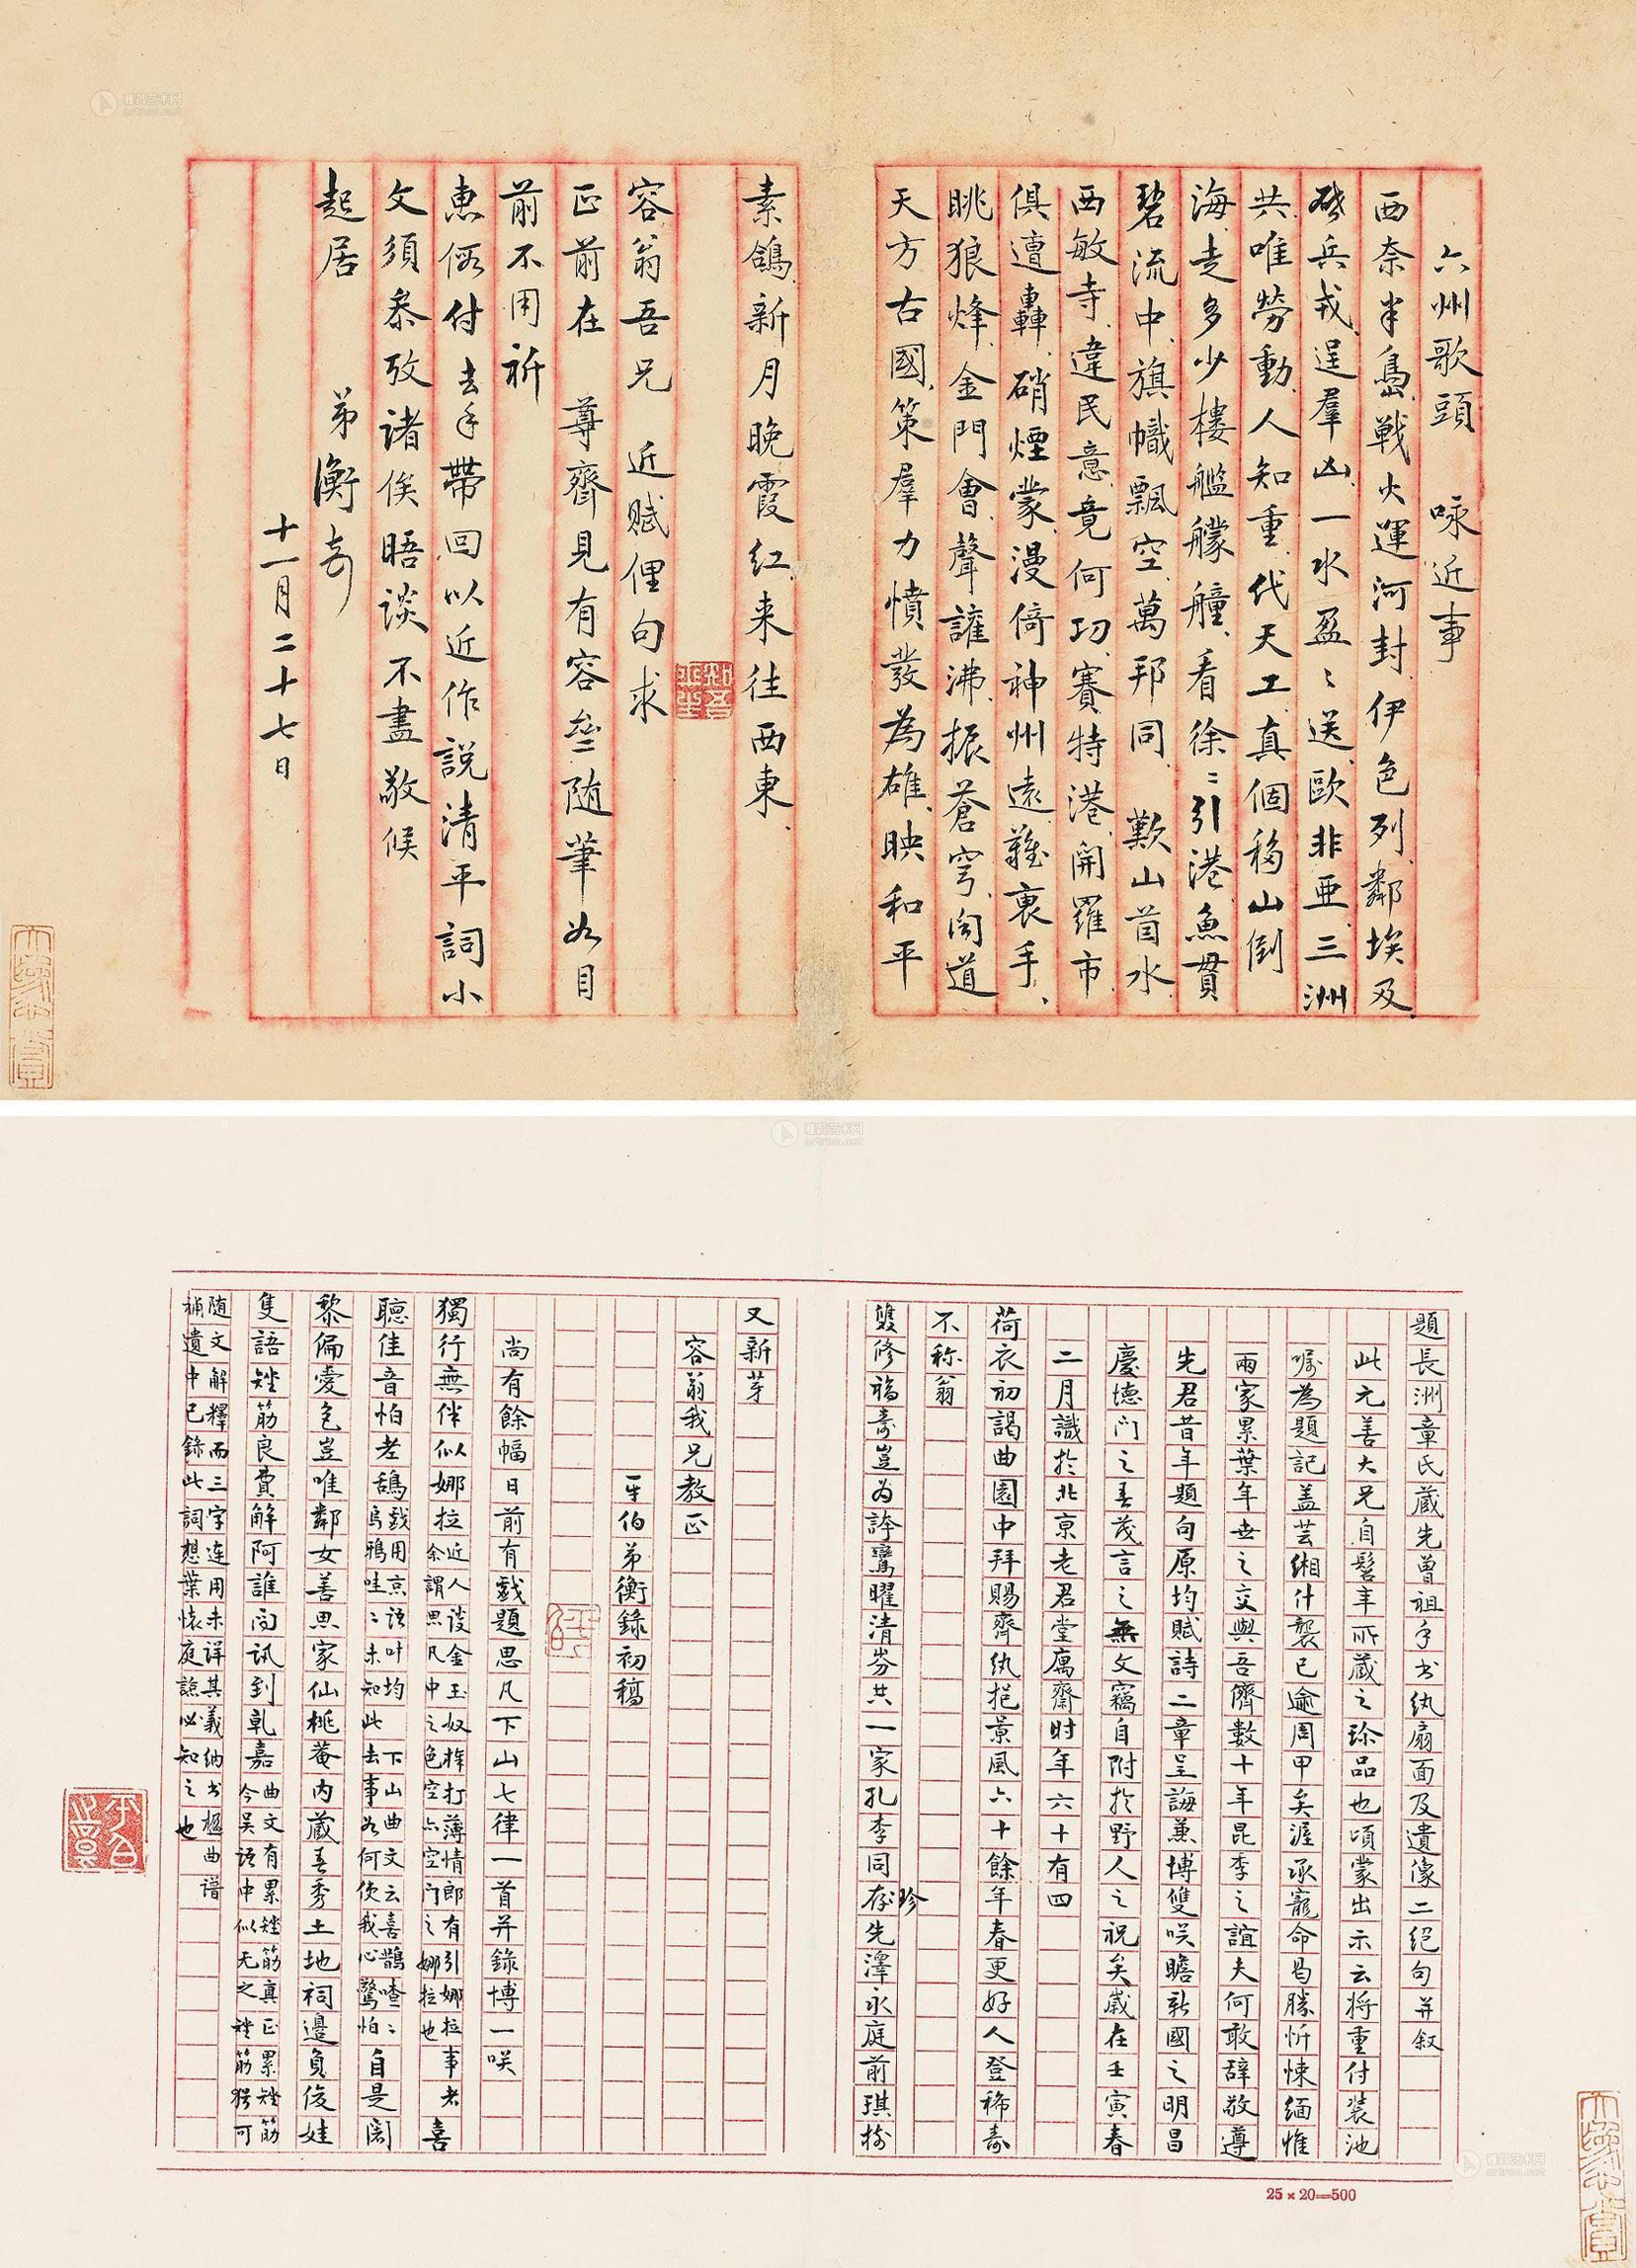 六州歌頭　咏近事
西奈半島戰火運河封伊色列鄰埃及
啓兵戎逞羣凶一水盈〻送歐非亞三洲
共唯勞動人知重代天工真個移山倒
海走多少樓艦艨艟看徐〻引港魚貫
碧流中旗幟飄空萬邦同　歎山茵水
西敏寺違民意竟何功賽特港開羅市
俱遭轟硝煙蒙漫倚神州遠難裏手
眺狼烽金門會聲讙沸振蒼穹闻道
天方古國策羣力憤發為雄映和平
素鴿新月晚霞紅来往西東
容翁吾兄　近賦俚句求
正前在　尊齋見有容壘二随筆如目
前不用祈
惠假付去手帶回以近作説清平詞小
文須參攷諸俟晤談不盡敬候
起居　弟衡奇
十一月二十七日
題長洲章氏蔵先曾祖手书纨扇面及遺像二绝句并叙
此元善大兄自髫年所蔵之珎品也頃蒙出示云将重付装池
嘱為題記盖芸緗什襲已逾周甲矣渥承寵命曷勝忻悚緬惟
兩家累葉年世之交與吾儕數十年昆季之誼夫何敢辞敬遵
先君昔年題句原均賦詩二章呈誨兼博雙咲瞻新國之明昌
慶德门之春茂言之無文竊自附於野人之祝矣嵗在壬寅春
二月識於北京老君堂寓齋时年六十有四
荷衣初謁曲園中拜賜齊纨挹景風六十餘年春更好人登稀壽
不称翁
雙修福壽豈为誇鸞曜清芬共一家孔李同存先澤永庭前琪樹
珍
又新芽
容翁我兄教正
平伯弟衡錄初稿
尚有餘幅日前有戲題思凡下山七律一首并錄博一咲
獨行無伴似娜拉近人谈金玉奴棒打薄情郎有引娜拉事者
余謂思凡中之色空亦空门之娜拉也喜
聽佳音怕老鴰戏用京语叶均
烏鴉哇〻未知此去事如何使我心驚怕下山曲文云喜鵲喳〻自是闍
黎偏愛色豈唯鄰女善思家仙桃菴内蔵春秀土地祠邊負俊娃
隻語矬筋良費解阿誰问讯到乹嘉曲文有累矬筋真正累矬筋
今吴语中似无之矬筋猶可
随文解釋而三字連用未详其義纳书楹曲谱
補遺中已錄此詞想葉懷庭諒必知之也
25×20=500